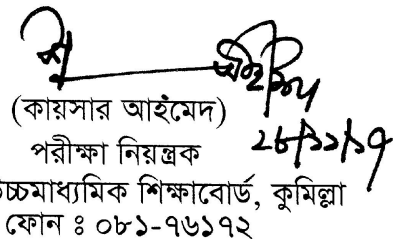 (কায়সার আহমেদ)
পরীক্ষা নিয়ন্ত্রক
উচ্চমাধ্যমিক শিক্ষাবোর্ড, কুমিল্লা
ফোন ঃ ০৮১-৭৬১৭২